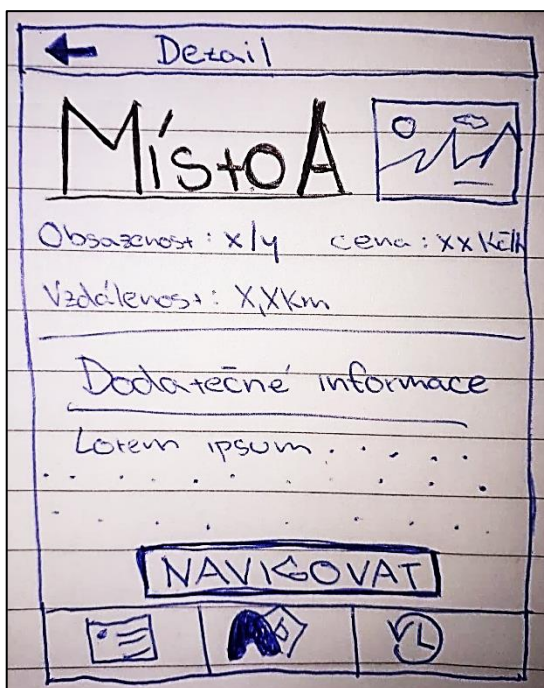 Detail
Místo A
Obsazenost: x/y cena: xx Kč/h
Vzdálenost: X,XKm
Dodatečné informace
Lorem ipsum
NAVIGOVAT